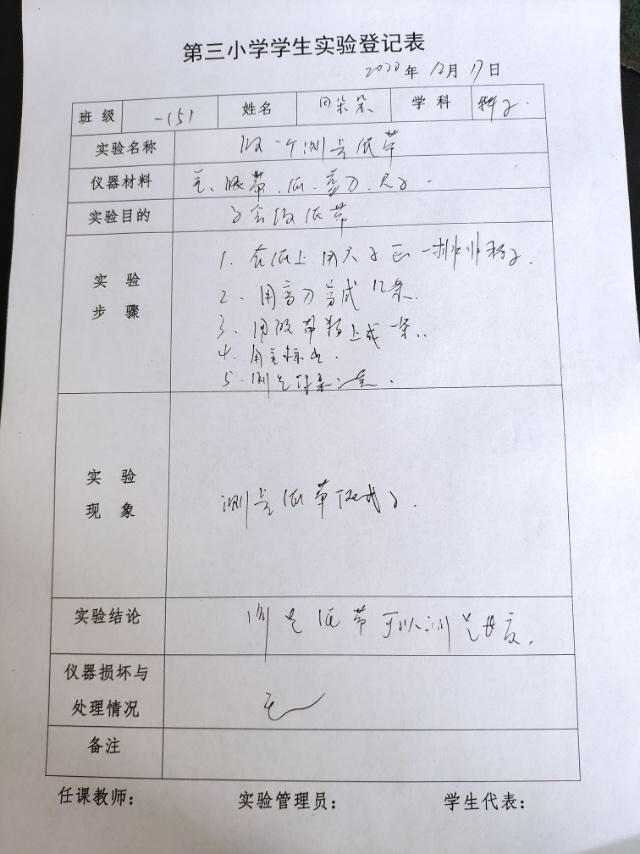 第三小学学生实验登记表
2020年12月17日
班级 一(5) 姓名 学科 科学
实验名称 做一个测量纸带
仪器材料 笔、胶带、纸、剪刀、尺子.
实验目的 学会做纸带
实验步骤
1. 在纸上用尺子画一排排格子.
2. 用剪刀剪成几条.
3. 用胶带粘上成一条.
4. 用笔标上.
5.
实验现象 测量纸带做成了.
实验结论 测量纸带可以测量长度.
仪器损坏与处理情况 无
备注
任课教师: 实验管理员: 学生代表: